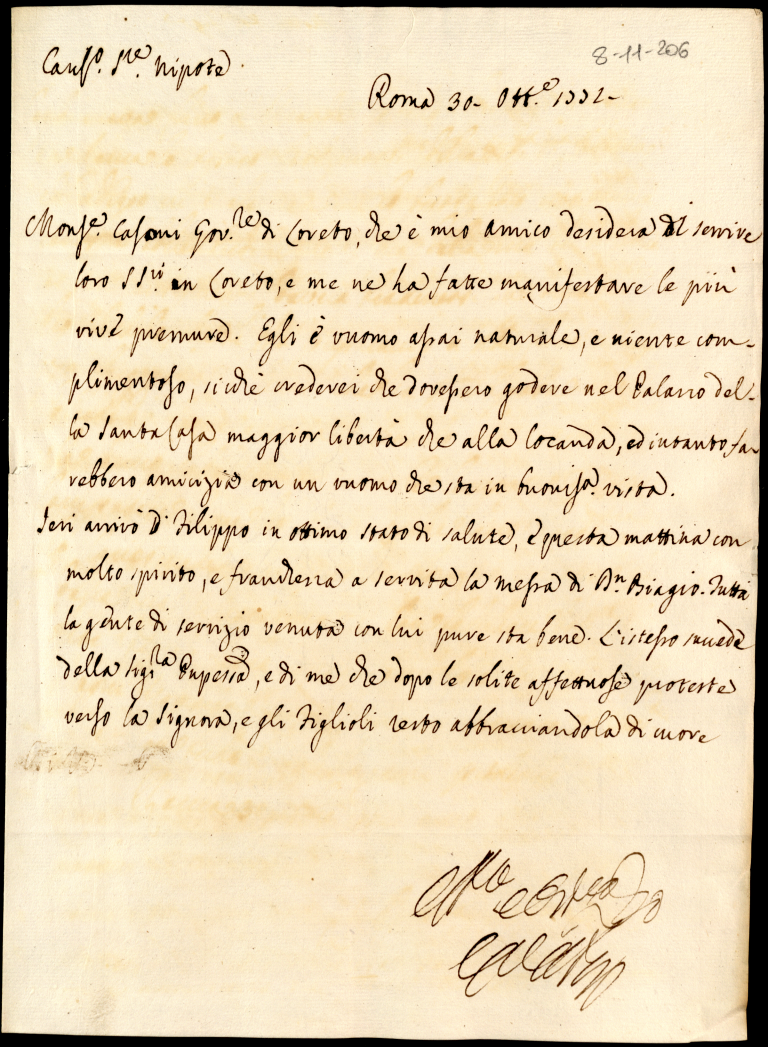 8-11-206
Cariss.o S.re Nipote
Roma 30- Ott.e 1772-
Mons.e Casoni Gov.re di Loreto, che è mio amico desidera di servire
loro SS.ri in Loreto, e me ne ha fatte manifestare le più
vive premure. Egli è vuomo assai naturale, e niente com-
plimentoso, sicchè crederei che dovessero godere nel Palazzo del-
la Santa Casa maggior libertà che alla locanda, ed intanto fa-
rebbero amicizia con un vuomo che sta in buoniss.a vista.
Jeri arrivò D. Filippo in ottimo stato di salute, e questa mattina con
molto spirito, e franchezza a servita la messa di Dn. Biagio. Tutta
la gente di servizio venuta con lui pure sta bene. L'istesso succede
della Sig.ra, e di me che dopo le solite affettuose proteste
verso la Signora, e gli Figlioli resto abbracciandola di cuore